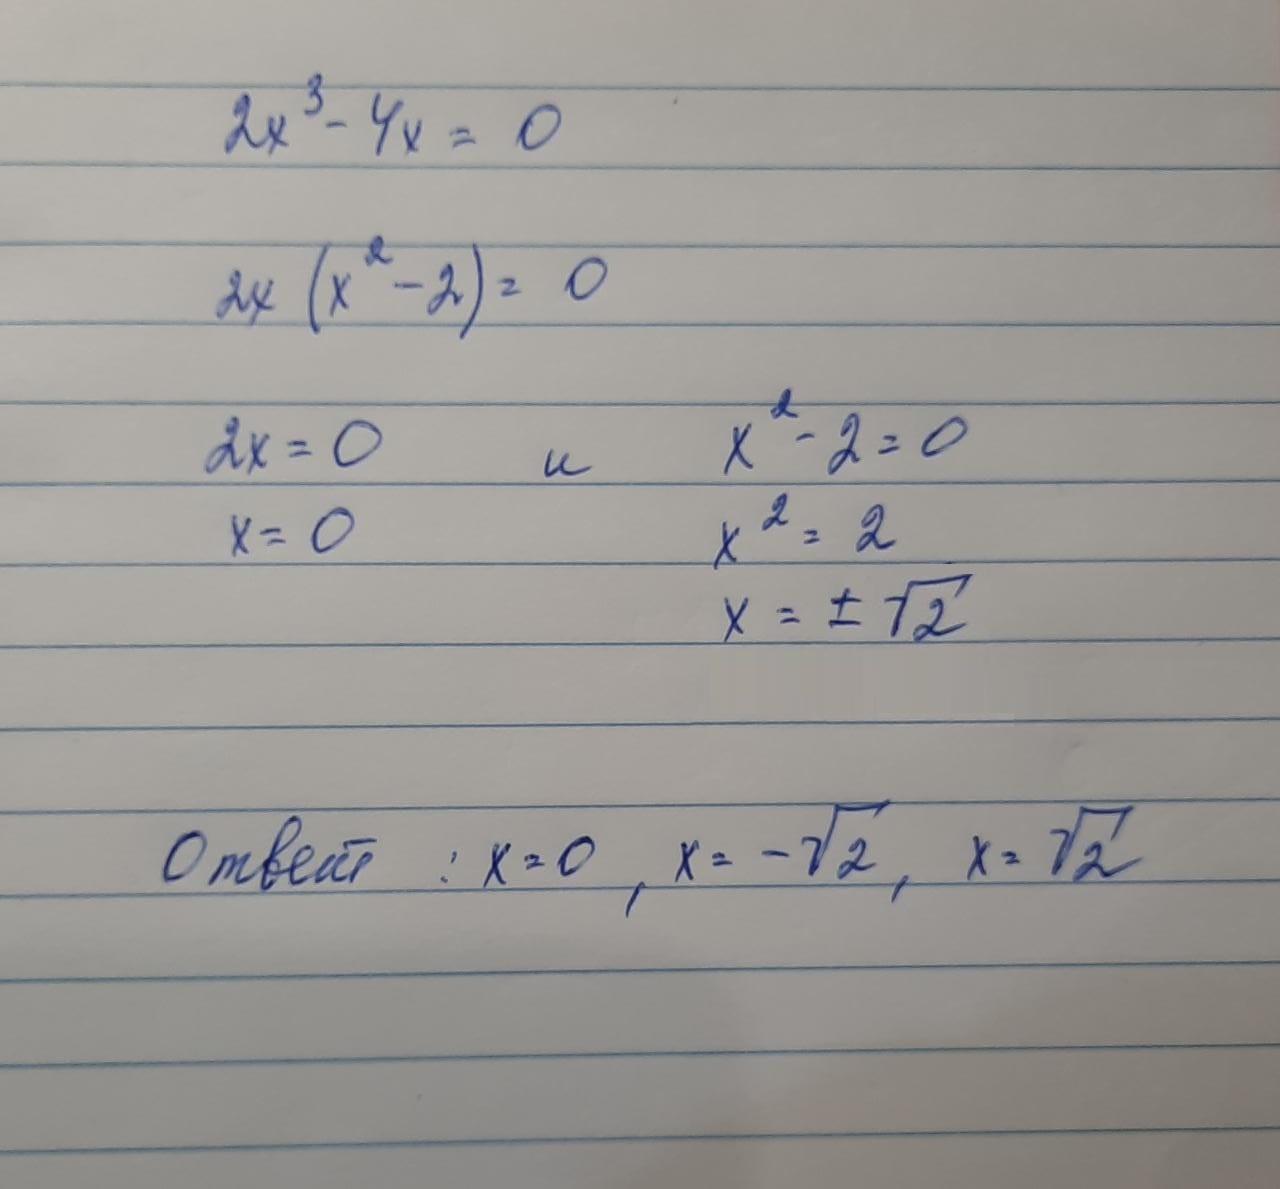 2x³ - 4x = 0
2x (x² - 2) = 0
2x = 0 и x² - 2 = 0
x = 0 x² = 2
x = ± √2
Ответ : x = 0 , x = -√2 , x = √2